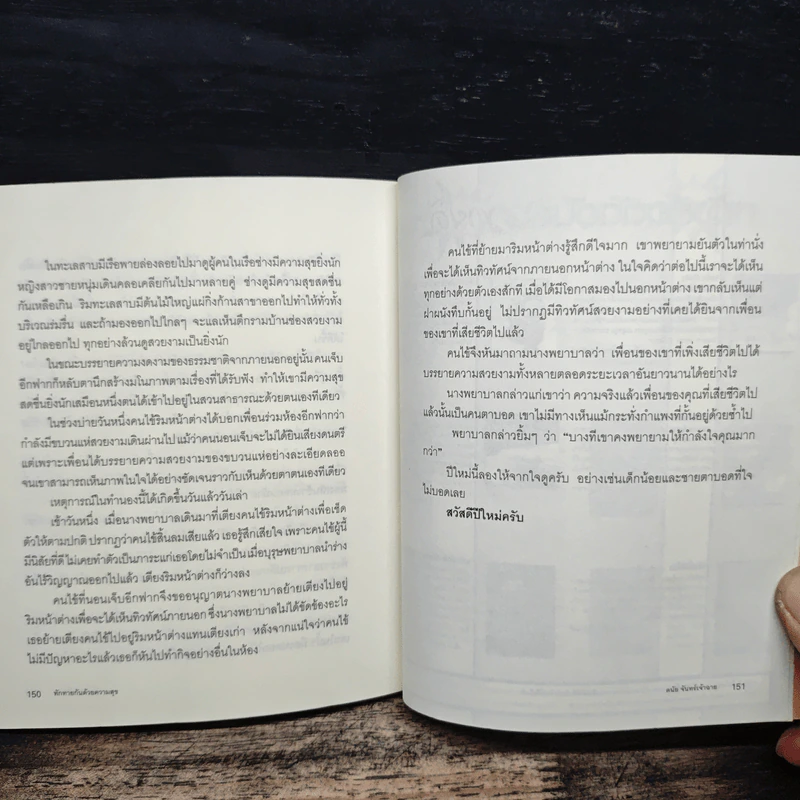 ในทะเลสาบมีเรือพายล่องลอยไปมาดูผู้คนในเรือช่างมีความสุขยิ่งนัก
หญิงสาวชายหนุ่มเดินคลอเคลียกันไปมาหลายคู่ ช่างดูมีความสุขสดชื่น
กันเหลือเกิน ริมทะเลสาบมีต้นไม้ใหญ่แผ่กิ่งก้านสาขาออกไปทำให้ทั่วทั้ง
บริเวณร่มรื่น และถ้ามองออกไปไกลๆ จะแลเห็นตึกรามบ้านช่องสวยงาม
อยู่ไกลออกไป ทุกอย่างล้วนดูสวยงามเป็นยิ่งนัก
ในขณะบรรยายความงดงามของธรรมชาติจากภายนอกอยู่นั้น คนเจ็บ
อีกฟากก็หลับตานึกสร้างมโนภาพตามเรื่องที่ได้รับฟัง ทำให้เขามีความสุข
สดชื่นยิ่งนักเสมือนหนึ่งตนได้เข้าไปอยู่ในสวนสาธารณะด้วยตนเองทีเดียว
ในช่วงบ่ายวันหนึ่งคนไข้ริมหน้าต่างได้บอกเพื่อนร่วมห้องอีกฟากว่า
กำลังมีขบวนแห่สวยงามเดินผ่านไป แม้ว่าคนนอนเจ็บจะไม่ได้ยินเสียงดนตรี
แต่เพราะเพื่อนได้บรรยายความสวยงามของขบวนแห่อย่างละเอียดลออ
จนเขาสามารถเห็นภาพในใจได้อย่างชัดเจนราวกับเห็นด้วยตาตนเองทีเดียว
เหตุการณ์ในทำนองนี้ได้เกิดขึ้นวันแล้ววันเล่า
เช้าวันหนึ่ง เมื่อนางพยาบาลเดินมาที่เตียงคนไข้ริมหน้าต่างเพื่อเช็ด
ตัวให้ตามปกติ ปรากฏว่าคนไข้สิ้นลมเสียแล้ว เธอรู้สึกเสียใจ เพราะคนไข้ผู้นี้
มีนิสัยที่ดีไม่เคยทำตัวเป็นภาระแก่เธอโดยไม่จำเป็น เมื่อบุรุษพยาบาลนำร่าง
อันไร้วิญญาณออกไปแล้ว เตียงริมหน้าต่างก็ว่างลง
คนไข้ที่นอนเจ็บอีกฟากจึงขออนุญาตนางพยาบาลย้ายเตียงไปอยู่
ริมหน้าต่างเพื่อจะได้เห็นทิวทัศน์ภายนอก ซึ่งนางพยาบาลไม่ได้ขัดข้องอะไร
เธอย้ายเตียงคนไข้ไปอยู่ริมหน้าต่างแทนเตียงเก่า หลังจากแน่ใจว่าคนไข้
ไม่มีปัญหาอะไรแล้วเธอก็หันไปทำกิจอย่างอื่นในห้อง
150 ทักทายกันด้วยความสุข
คนไข้ที่ย้ายมาริมหน้าต่างรู้สึกดีใจมาก เขาพยายามยันตัวในท่านั่ง
เพื่อจะได้เห็นทิวทัศน์จากภายนอกหน้าต่าง ในใจคิดว่าต่อไปนี้เราจะได้เห็น
ทุกอย่างด้วยตัวเองสักที เมื่อได้มีโอกาสมองไปนอกหน้าต่าง เขากลับเห็นแต่
ฝาผนังทึบกั้นอยู่ ไม่ปรากฏมีทิวทัศน์สวยงามอย่างที่เคยได้ยินจากเพื่อน
ของเขาที่เสียชีวิตไปแล้ว
คนไข้จึงหันมาถามนางพยาบาลว่า เพื่อนของเขาที่เพิ่งเสียชีวิตไปได้
บรรยายความสวยงามทั้งหลายตลอดระยะเวลาอันยาวนานได้อย่างไร
นางพยาบาลกล่าวแก่เขาว่า ความจริงแล้วเพื่อนของคุณที่เสียชีวิตไป
แล้วนั้นเป็นคนตาบอด เขาไม่มีทางเห็นแม้กระทั่งกำแพงที่กั้นอยู่ด้วยซ้ำไป
พยาบาลกล่าวยิ้มๆ ว่า “บางทีเขาคงพยายามให้กำลังใจคุณมาก
กว่า”
ปีใหม่นี้ลองให้จากใจดูครับ อย่างเช่นเด็กน้อยและชายตาบอดที่ใจ
ไม่บอดเลย
สวัสดีปีใหม่ครับ
ดนัย จันทร์เจ้าฉาย 151